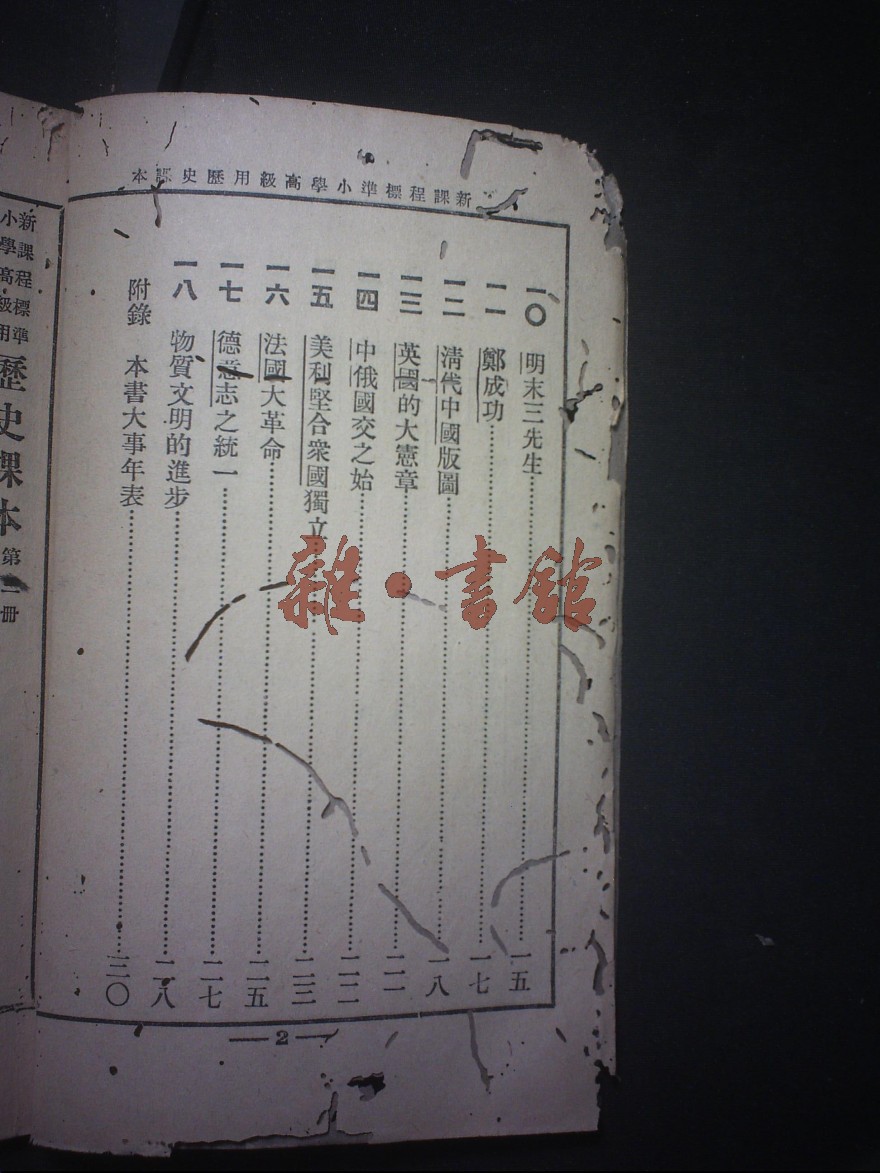 新課程標準小學高級用歷史課本
一〇 明末三先生 一五
一一 鄭成功 一七
一二 清代中國版圖 一八
一三 英國的大憲章 二一
一四 中俄國交之始 二二
一五 美利堅合衆國獨立 二三
一六 法國大革命 二五
一七 德意志之統一 二七
一八 物質文明的進步 二八
附錄 本書大事年表 三〇
2
新課程標準
小學高級用
歷史課本
雜·書館